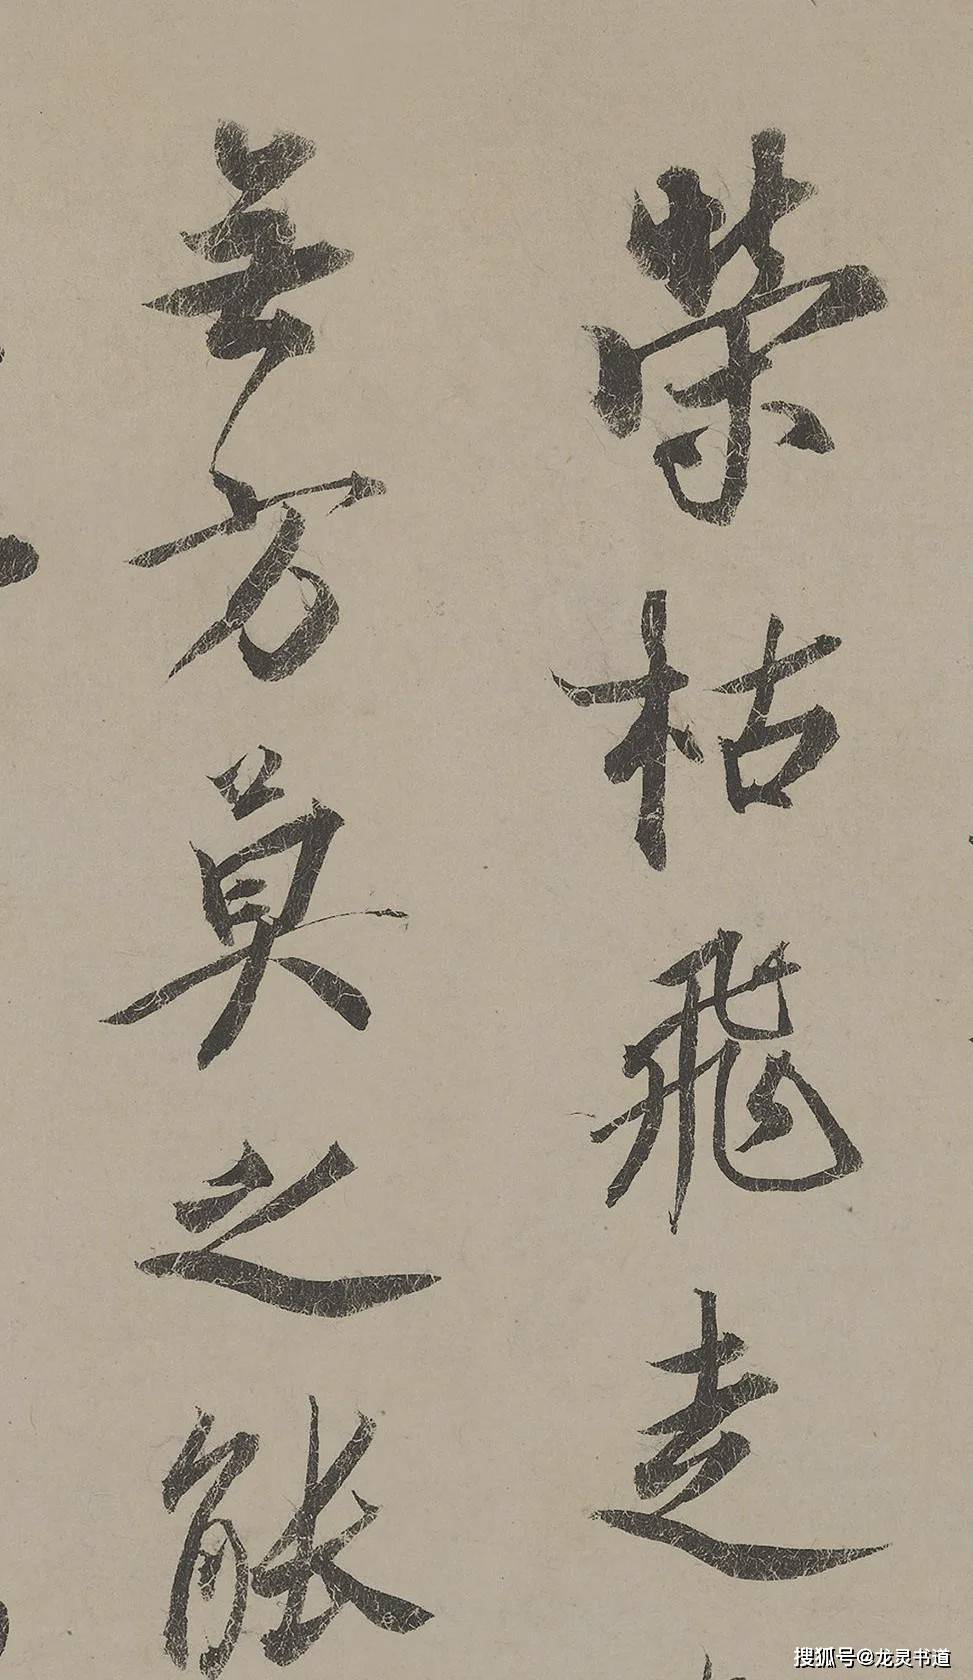 榮枯飛走
無方莫之能
搜狐号@龙灵书道